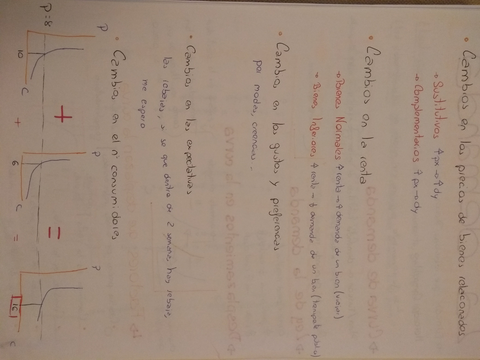 • Cambios en los precios de bienes relacionados
→ Sustitutivos ↑px→↑dy
→ Complementarios ↑px→↓dy
• Cambios en la renta
→ Bienes Normales ↑renta→↑demanda de un bien (viajar)
→ Bienes Inferiores ↑renta→↓demanda de un bien
• Cambios en los gustos y preferencias
por modas, creencias,
• Cambios en las expectativas
Ej. rebajas, si se que dentro de 2 semanas hay rebajas,
me espero
• Cambios en el nº consumidores
P
P=8
10
C
+
+
P
6
C
=
=
P
16
C